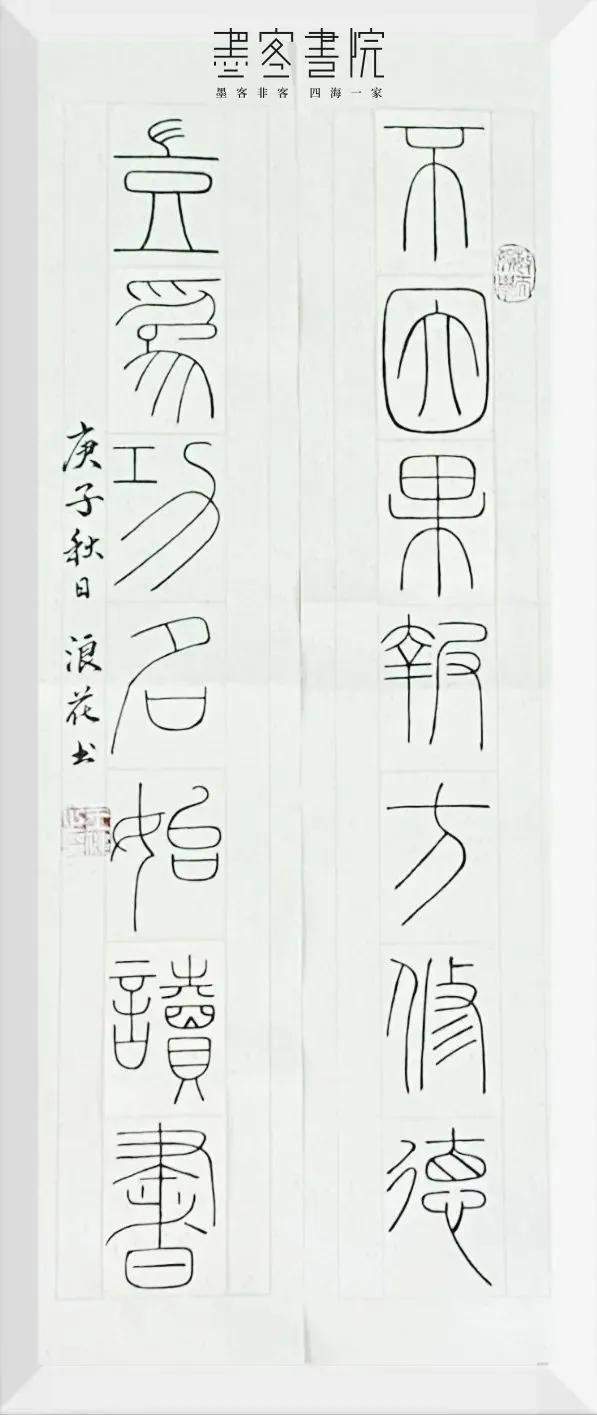 墨客書院
墨客非客 四海一家
不因果報方修德
豈爲功名始讀書
庚子秋日 浪花书